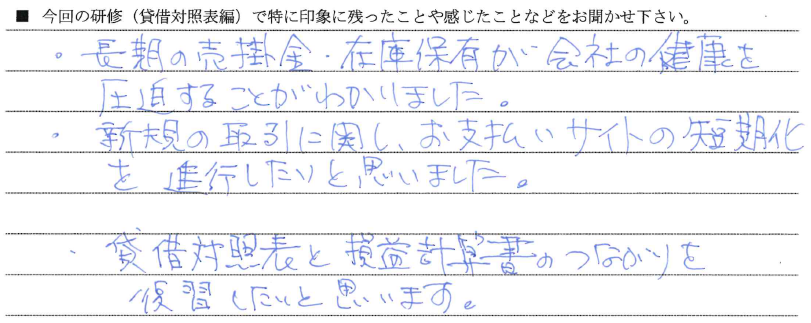 ■ 今回の研修（貸借対照表編）で特に印象に残ったことや感じたことなどをお聞かせ下さい。
・長期の売掛金・在庫保有が会社の健康を
圧迫することがわかりました。
・新規の取引に関し、お支払いサイトの短期化
を進行したいと思いました。
・貸借対照表と損益計算書のつながりを
復習したいと思います。